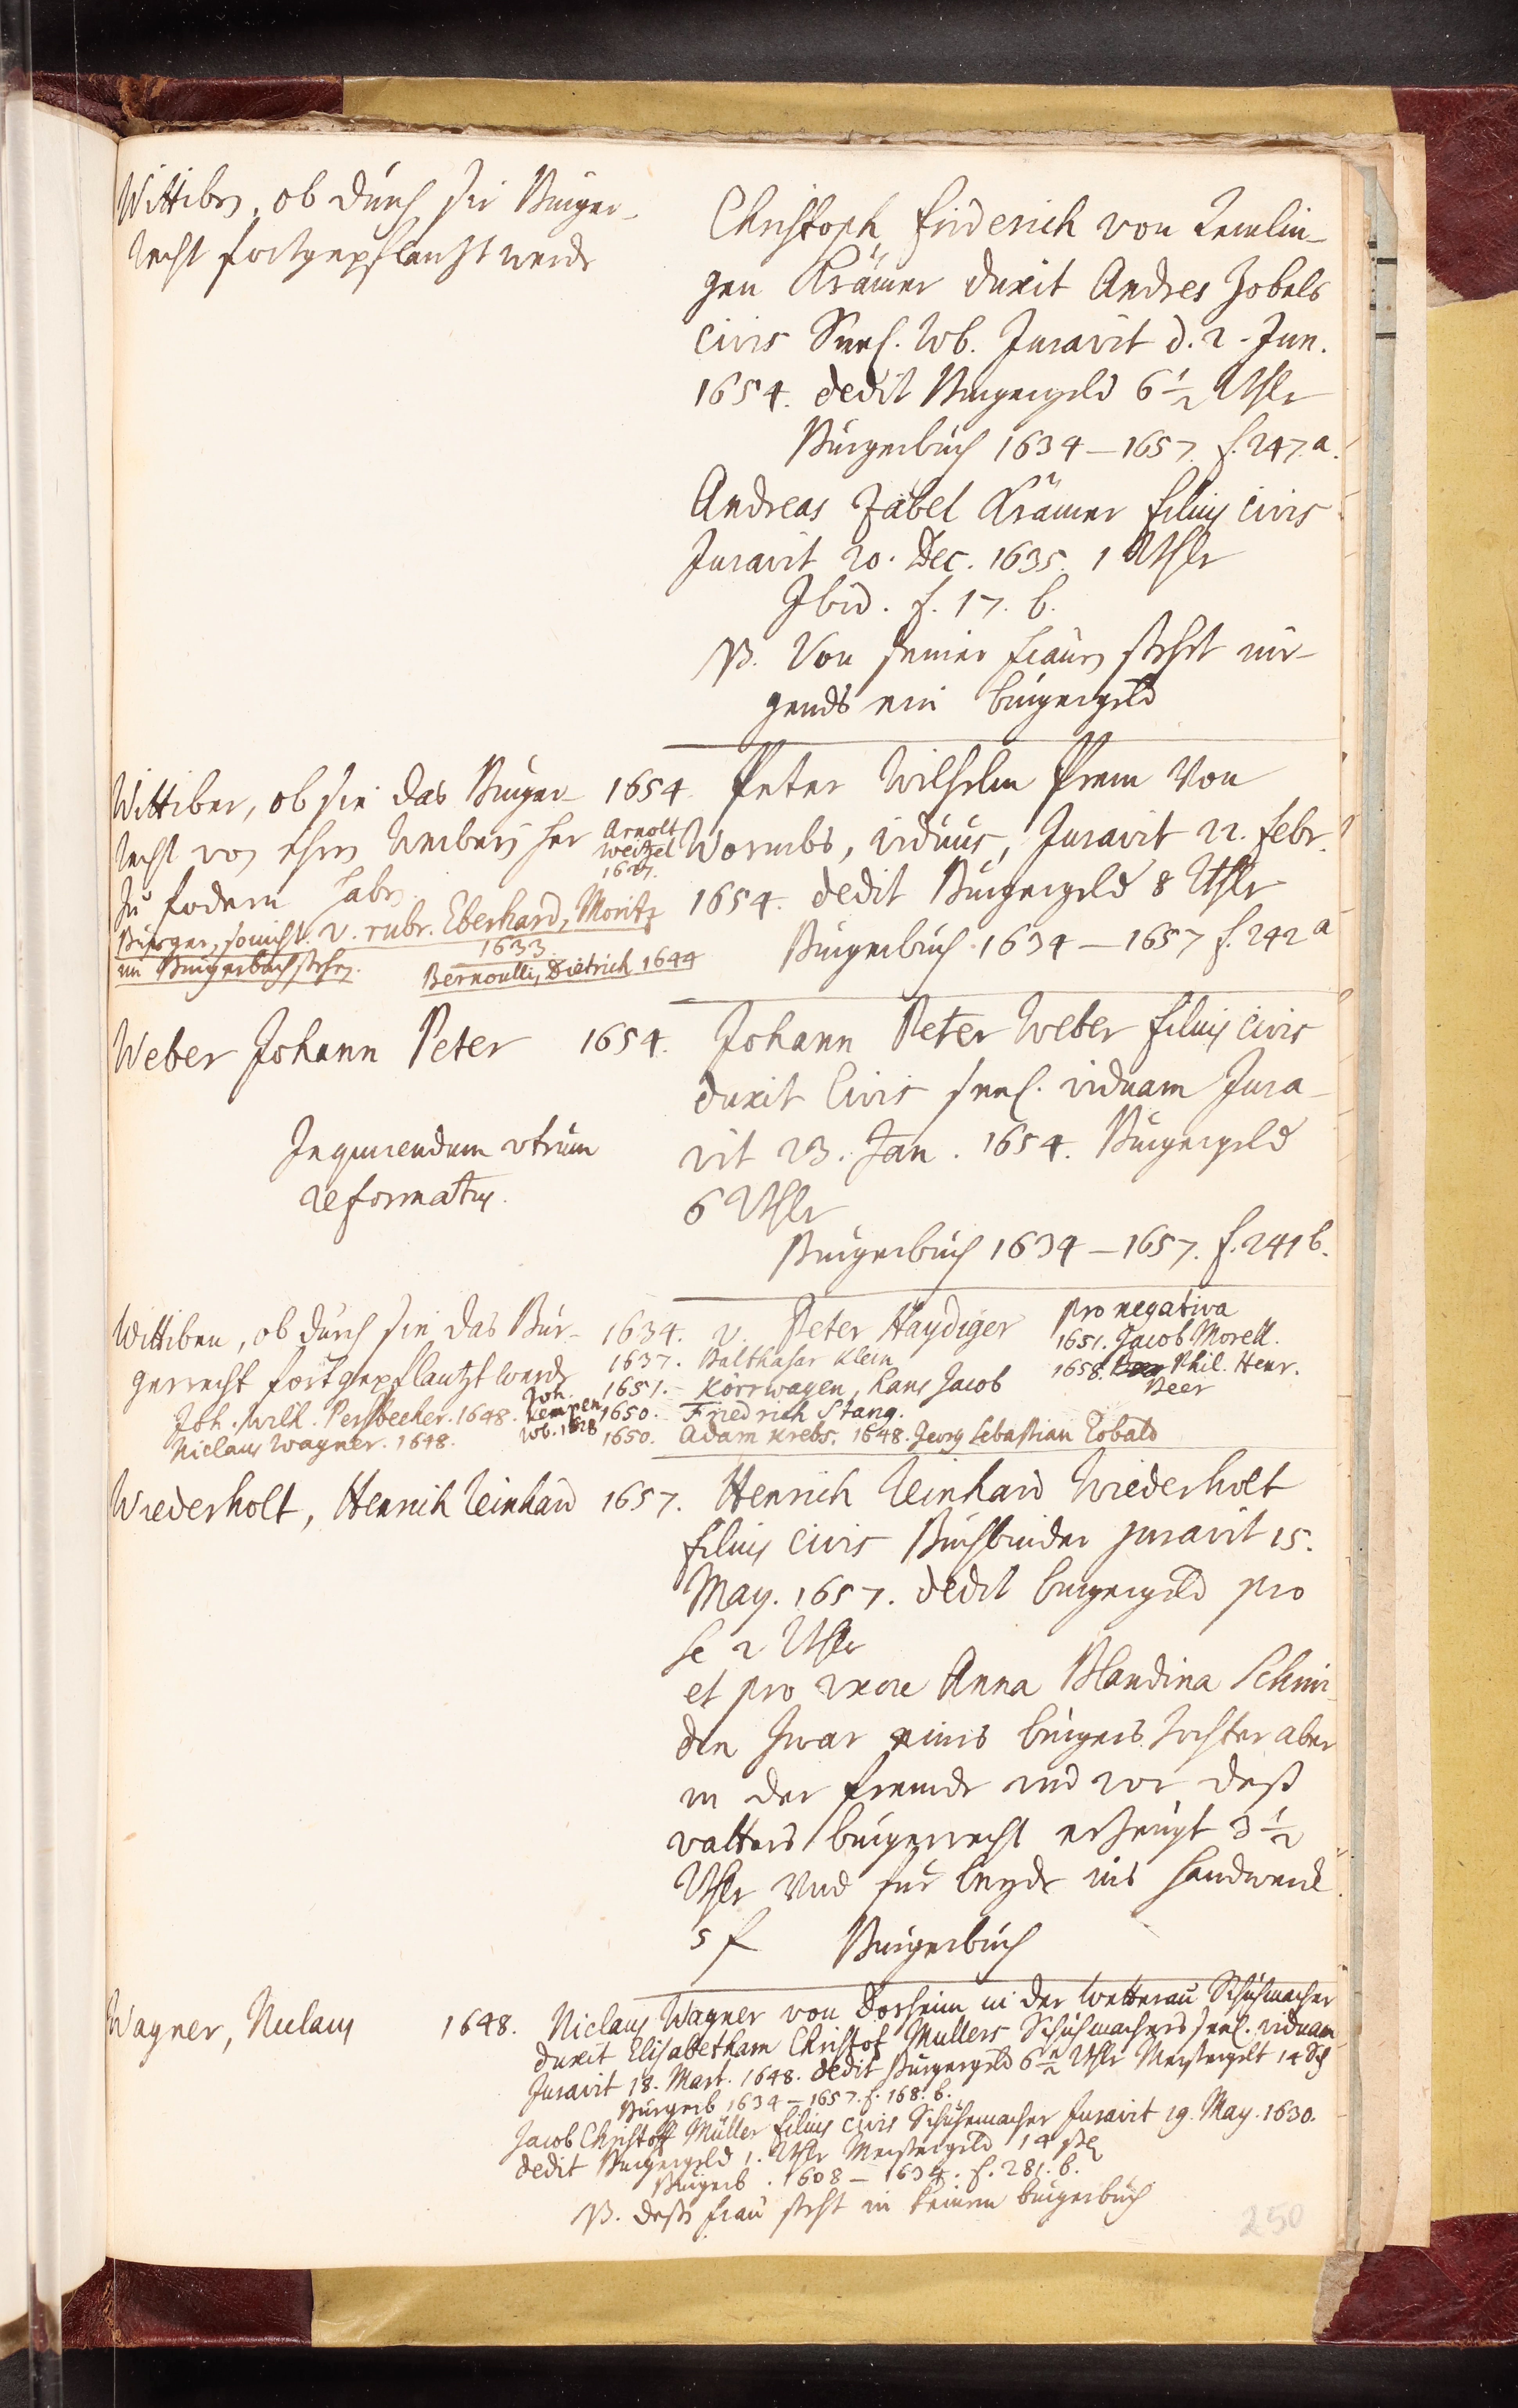 Wittiben, ob durch sie Burger-
recht fortgepflantzt werde
Christoph Friderich von
gen Krämer duxit Andres Zobels
civis Seel. Wb. Juravit d. 2. Jun.
1654. dedit Burgergeld 6 1/2 Rthlr
Burgerbuch 1634-1657. f. 247. a.
Andreas Zabel Krämer filius civis
Juravit 20. Dec. 1635. 1 Rthlr
Ibid. f. 17. b.
NB. Von seiner Frauen stehet nir-
gends ein burgergeld
Wittiber, ob sie das Burger-
recht von ihren Weibern her
zu fodern haben.
Burger, so nicht v. rubr. Eberhard, Moritz
im Burgerbuch stehen. 1633
Bernoulli, Dietrich 1644
1654.
Arnolt
Weitzel
Peter Wilhelm Prem von
Wormbs, viduus, Juravit 22. Febr.
1654. dedit Burgergeld 8 Rthlr
Burgerbuch 1634-1657 f. 242 a
Weber Johann Peter 1654.
Inquirendum utrum
reformatus.
Johann Peter Weber filius civis
duxit Civis seel. viduam Jura-
vit 23. Jan. 1654. Burgergeld
6 Rthlr
Burgerbuch 1634-1657. f. 241 b.
Wittiben, ob durch sie das Bur-
gerrecht fortgepflantzt werde
Joh. Wilh. 1648.
Niclaus Wagner. 1648.
Joh.
Kempen
Wb. 1628
1634. v. Peter Haydiger
1637. Balthasar Klein
1651. Körrwagen, Hans Jacob
1650. Friedrich Stang.
1650. Adam Krebs. 1648. Georg Sebastian Cobald
pro negativa
1651. Jacob Morell.
1658. Phil. Henr.
Beer
Wiederholt, Henrich Reinhard 1657.
Henrich Reinhard Wiederholt
filius civis Buchbinder juravit 15.
May. 1657. dedit burgergeld pro
se 2 Rthlr
et pro uxore Anna Blandina Schmi-
din zwar eines burgers Tochter aber
in der fremde und vor deß
vatters burgerrecht erzeugt 3 1/2
Rthlr und für beyde ins Handwerck
5 f Burgerbuch
Wagner, Niclaus 1648.
Niclaus Wagner von Dorheim in der Wetterau Schuhmacher
duxit Elisabetham Christof Müllers Schuhmachers seel. viduam
Juravit 18. Mart. 1648. dedit Burgergeld 6 1/2 Rthlr Meistergelt 14 Sch
Burgerb 1634-1657. f. 168. b.
Jacob Christoff Müller filius civis Schuhemacher Juravit 19. May. 1630.
dedit Burgergeld 1. Rthlr Meistergeld 14 ßl
Burgerb. 1608-1634. f. 281. b.
NB. deße frau steht in keinem burgerbuch
250